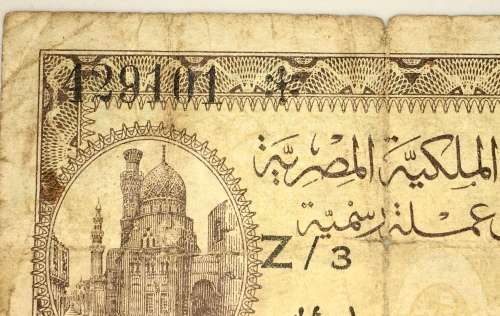 429101
الملكية المصرية
عملة رسمية
Z/3